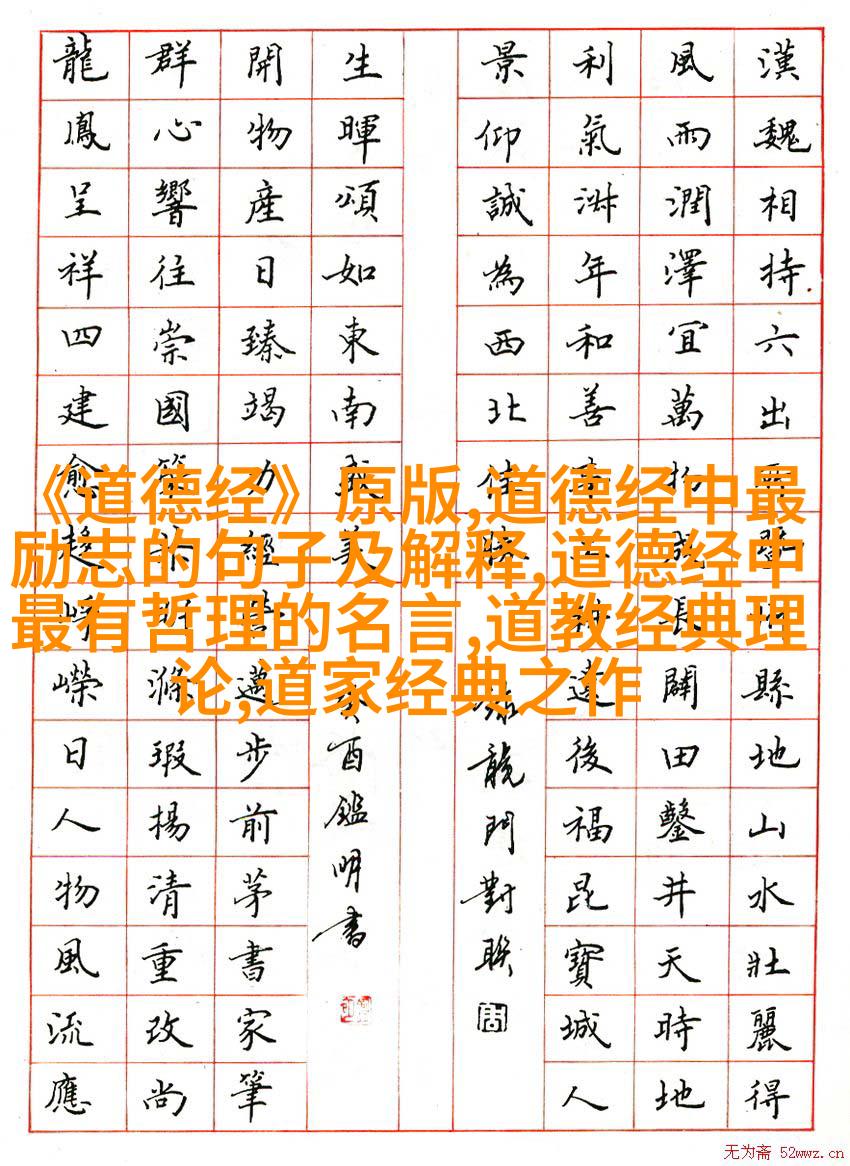 漢魏相持六出縣地山水壯麗得
風雨潤澤宜萬物成長闢田鑿井天時地
利氣淋年和善遠後福昆寶城人
景仰誠為西北佳勝
龍門對聯
生暉頌如東南成美
酉鑑明書
開物產日臻竭力經營邁步前茅書家筆
群心響往崇國策滌瑕揚清重改尚
龍鳳呈祥四建愈趨崢嶸日人物風流應
《道德经》原版,道德经中最
励志的句子及解释,道德经中
最有哲理的名言,道教经典理
论,道家经典之作
无为斋 52wwz.cn